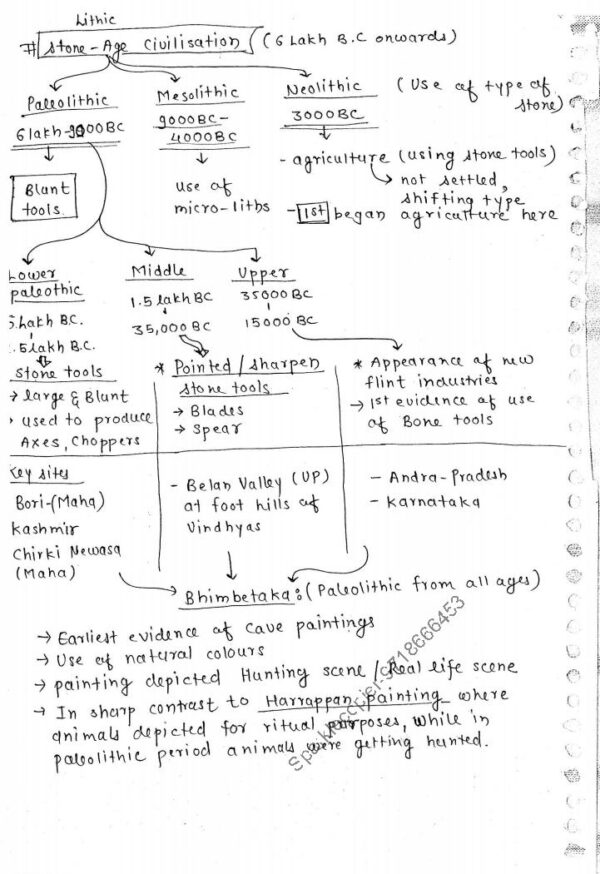 Lithic
# Stone-Age Civilisation (6 Lakh B.C onwards)
Paleolithic
6 lakh-9000BC
Blunt
tools
Mesolithic
9000BC-
4000BC
use of
micro-liths
Neolithic (Use of type of
stone)
3000BC
- agriculture (using stone tools)
→ not settled,
shifting type
- 1st began agriculture here
Lower
paleothic
5Lakh B.C.
.5Lakh B.C.
Stone tools
→ large & Blunt
→ used to produce
Axes, Choppers
Middle
1.5 lakh BC
35,000 BC
* Pointed/sharpen
stone tools
→ Blades
→ Spear
Upper
35000BC
15000BC
* Appearance of new
flint industries
→ 1st evidence of use
of Bone tools
Key sites
Bori-(Maha)
Kashmir
Chirki Newasa
(Maha)
- Belan Valley (UP)
at foot hills of
Vindhyas
- Andra-Pradesh
- Karnataka
Bhimbetaka: (Paleolithic from all ages)
→ Earliest evidence of Cave paintings
→ Use of natural colours
→ painting depicted Hunting scene/Real life scene
→ In sharp contrast to Harrappan painting where
animals depicted for ritual purposes, while in
paleolithic period animals were getting hunted.